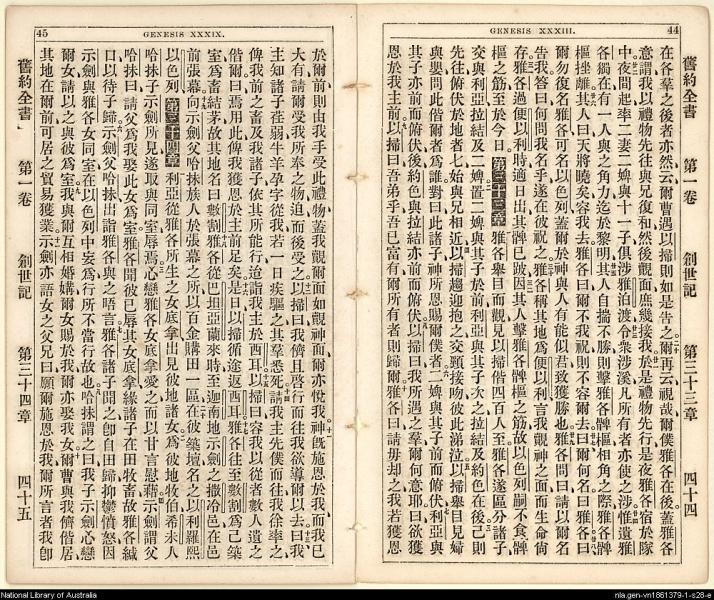 GENESIS XXXIII. 44
舊約全書 第一卷 創世記 第三十三章 四十四
在各羣之後者亦然云爾曹遇以掃則如是告之爾再云視哉爾僕雅各在後蓋雅各
意謂我以禮物先往與兄復和然後覿面庶幾接我於是禮物先行是夜雅各宿於隊
中夜間起率二妻二婢與十一子俱涉雅泊渡令衆涉溪凡所有者亦使之涉惟遺雅
各獨在有一人與之角力迄於黎明其人自揣不勝則擊雅各髀樞相角之際雅各髀
樞挫離其人曰天將曉矣容我去雅各曰爾不我祝則不容爾去曰爾何名曰雅各曰
爾勿復名雅各可名以色列蓋爾於神與人有能似君致獲勝也雅各問曰請以爾名
告我答曰何問我名乎遂在彼祝之雅各稱其地爲便以利言我覿神之面而生命尙
存雅各過便以利時適日出其髀已跛因其人擊雅各髀樞之筋故以色列嗣不食髀
樞之筋至於今日第三十三章雅各舉目而觀見以掃偕四百人至雅各遂區分諸子
交與利亞拉結及二婢置二婢與其子於前利亞與其子次之拉結及約色在後己則
先往俯伏於地者七始與兄相近以掃趨迎抱之交頸接吻彼此涕泣以掃舉目見婦
與嬰問此偕爾者爲誰對曰此諸子神所恩賜爾僕者二婢與其子前而俯伏利亞與
其子亦前而俯伏後約色與拉結亦前而俯伏以掃曰我所遇之羣爾何意耶曰欲獲
恩於我主前以掃曰吾弟乎吾已富有爾所有者則歸爾雅各曰請毋却之我若獲恩
45 GENESIS XXXIX.
於爾前則由我手受此禮物蓋我覿爾面如覿神面爾亦悅我神旣施恩於我而我已
大有請爾受我所奉之物迫而後受之以掃曰我儕且啓行而往我欲導爾以去曰我
主知諸子荏弱牛羊孕字從我若一日疾驅之其羣悉死請我主先僕而往我徐率之
俾我前之畜及我諸子依其所能行迨詣我主於西耳以掃曰容我以從者數人遺之
偕爾曰焉用此俾我獲恩於主前足矣是日以掃循途返西耳雅各往至數割爲己築
室爲畜結茅故其地名曰數割雅各從巴坦亞蘭來時至迦南地示劍之撒冷邑在邑
前張幕向示劍父哈抹族人於張幕之所以百金購田一區在彼築壇名之以利羅熙
以色列第三十四章利亞從雅各所生之女底拿出見彼地諸女爲彼地牧伯希未人
哈抹子示劍所見遂取與同室辱焉心戀雅各女底拿愛之而以甘言慰藉示劍謂父
哈抹曰請父爲我娶此女爲室雅各聞彼已辱其女底拿緣諸子在田牧畜故雅各緘
口以待子歸示劍父哈抹出詣雅各與之晤言雅各諸子聞之卽自田歸抑鬱憤怒因
示劍與雅各女同室在以色列中妄爲行所不當行故也哈抹謂之曰我子示劍心戀
爾女請以之與彼爲室我與爾互相婚媾爾女賜於我爾亦娶我女爾曹與我儕偕居
其地在爾前可居之貿易獲業示劍亦語女之父兄曰願爾施恩於我爾所言者我卽
舊約全書 第一卷 創世記 第三十四章 四十五
National Library of Australia
nla.gen-vn1861379-1-s28-e